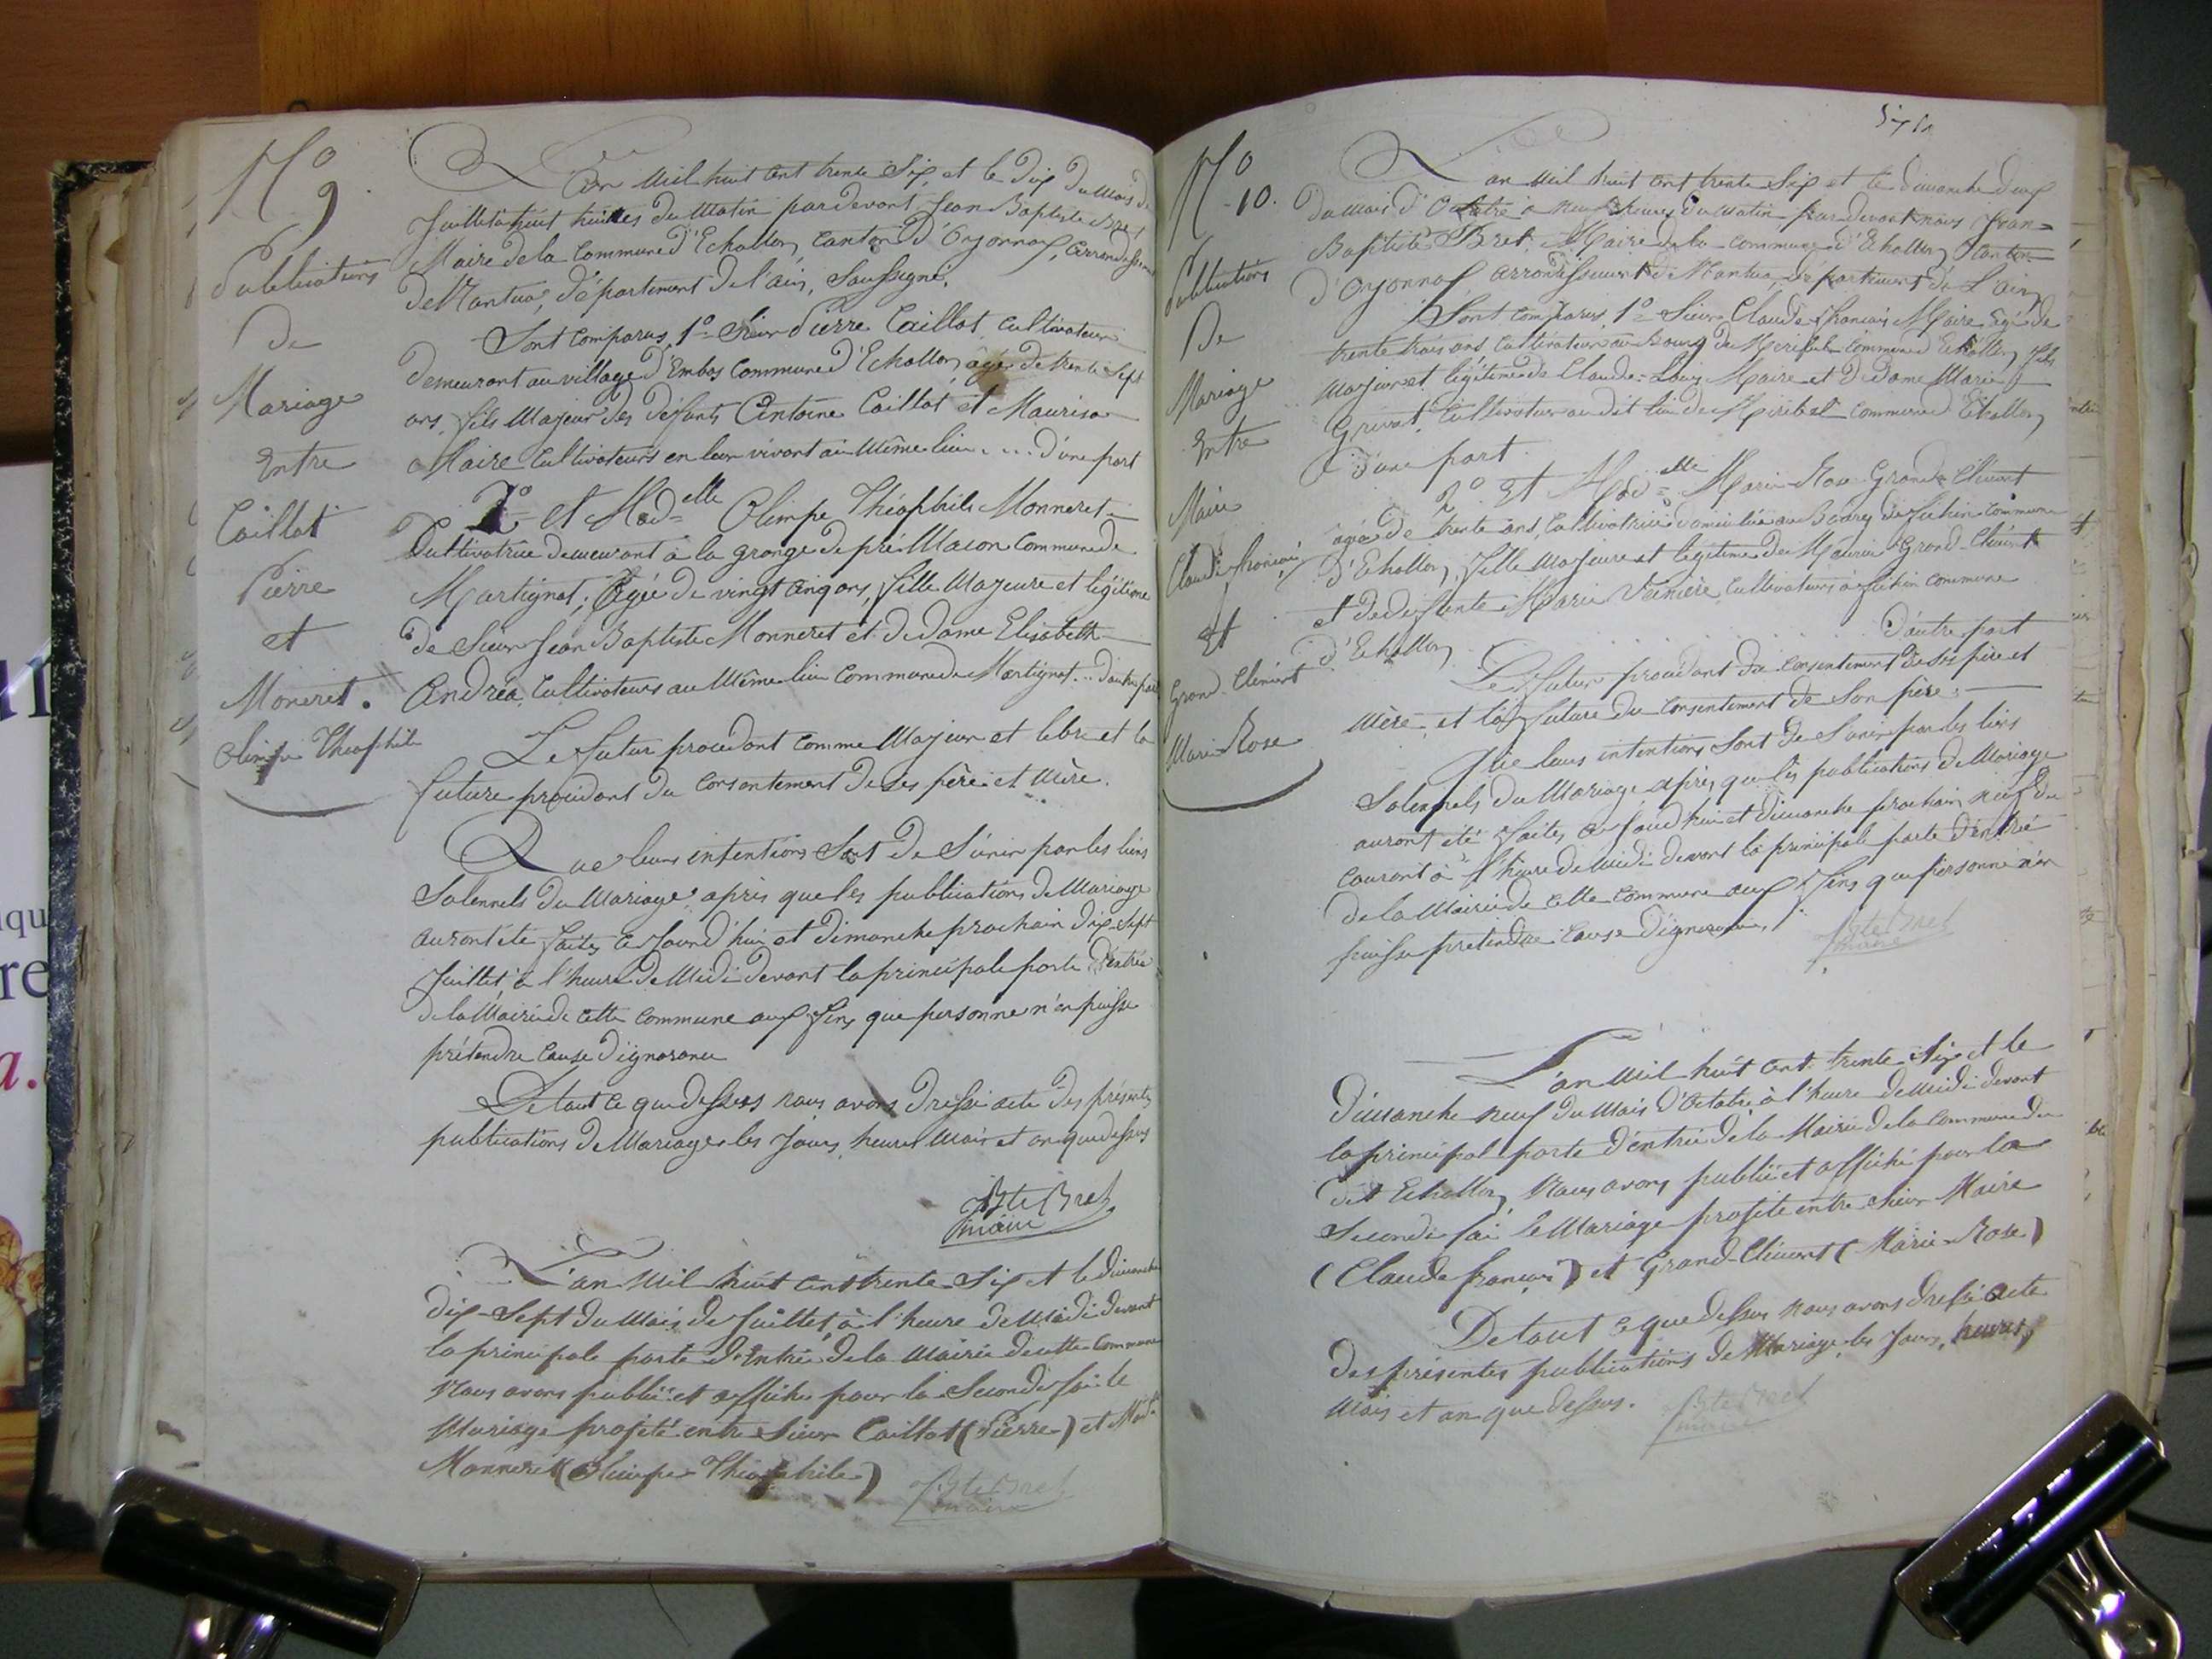 N° 9.
Publications
De
Mariage
Entre
Caillat
Pierre
et
Moneret.
Olimpe Théophile
L'an Mil huit Cent trente Six, et le Dix Du Mois de
Juillet à huit heures Du Matin pardevant Jean Baptiste Bret
Maire de la Commune d'Echallon Canton d'Oyonnax, arrondissement
De Nantua, Département de l'ain, Soussigné,
Sont Comparus, 1° Sieur Pierre Caillat, Cultivateur
demeurant au village d'Embos Commune d'Echallon, agé de trente Sept
ans, fils Majeur des défunts Antoine Caillat et Maurisa
Maire Cultivateurs en leur vivant au Même lieu .... d'une part
2° et Mad.elle Olimpe Théophile Monneret
Cultivatrice demeurant à la grange de pré Macon Commune de
Martignat, agée de vingt Cinq ans, fille Majeure et légitime
de Sieur Jean Baptiste Monneret et de Dame Elisabeth
Andréa, Cultivateurs au Même lieu Commune de Martignat .. d'autre part
Le futur procédant comme Majeur et libre et la
future procédant du Consentement de Ses père et Mère.
Que leurs intentions Sont de S'unir par les liens
Solennels du Mariage, après que les publications de Mariage
auront été faites Ce Jourd'hui et Dimanche prochain Dix-Sept
Juillet, à l'heure de Midi devant la principale porte d'entrée
de la Mairie de Cette Commune aux fins que personne n'en puisse
prétendre Cause d'ignorance
De tout Ce que dessus nous avons Dressé acte Des présentes
publications De Mariage les Jour, heure Mois et an que dessus
J Bte Bret
maire
L'an Mil huit Cent trente Six et le dimanche
dix-Sept du Mois de Juillet, à l'heure de Midi devant
la principale porte d'Entrée de la Mairie de cette Commune
Nous avons publié et affiché pour la Seconde fois le
Mariage projeté entre Sieur Caillat (Pierre) et Mad.
Monneret (Olimpe Théophile)
J Bte Bret
maire
N° 10.
Publications
De
Mariage
Entre
Maire
Claude francois
Et
Grand-Clément
Marie Rose
L'an Mil huit Cent trente Six et le dimanche deux
Du Mois d'Octobre à neuf heures Du Matin, par devant nous Jean-
Baptiste Bret Maire de la Commune d'Echallon Canton
d'Oyonnax, arrondissement de Nantua, département de L'ain
Sont Comparus, 1° Sieur Claude francois Maire agé de
trente trois ans, Cultivateur au Bourg de Mirebel Commune d'Echallon, fils
Majeur et légitime de Claude-Louis Maire et de Dame Marie J
Grivat, Cultivateurs au dit lieu de Miribel Commune d'Echallon,
d'une part.
2° Et Mad.elle Marie Rose Grand-Clément
agée de trente ans, Cultivatrice domiciliée au Bourg de Commune
d'Echallon, fille Majeure et légitime de Maurice Grand-Clément
et de défunte Marie Vernière, Cultivateurs à Commune
d'Echallon, d'autre part
Le futur procédant du Consentement de Ses père et
Mère, et la future du Consentement de Son père.
Que leurs intentions Sont de S'unir par les liens
Solennels du Mariage après que les publications de Mariage
auront été faites Ce Jourd'hui et dimanche prochain neuf du
Courant à l'heure de Midi devant la principale porte d'entrée
de la Mairie de Cette Commune aux fins que personne n'en
puisse prétendre Cause d'ignorance.
J Bte Bret
maire
L'an Mil huit Cent trente Six et le
Dimanche neuf Du Mois D'Octobre, à l'heure de Midi devant
la principal porte d'entrée de la Mairie de la Commune du
dit Echallon, Nous avons publié et affiché pour la
Seconde foi le Mariage projeté entre Sieur Maire
(Claude francois) et Grand-Clément (Marie-Rose)
De tout Ce que dessus Nous avons dressé acte
des présentes publications de Mariage les Jour, heures,
Mois et an que dessus.
J Bte Bret
maire